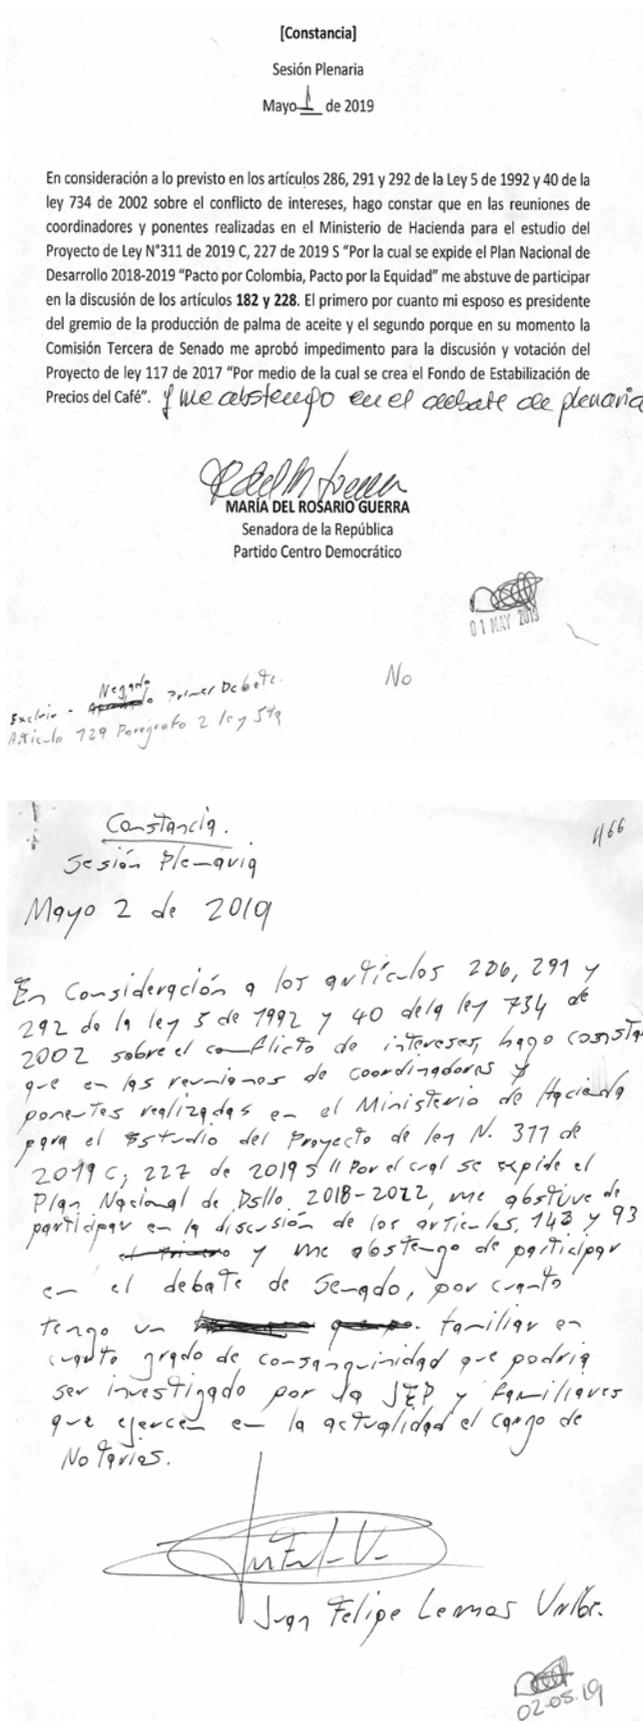 [Constancia]
Sesión Plenaria
Mayo 1 de 2019
En consideración a lo previsto en los artículos 286, 291 y 292 de la Ley 5 de 1992 y 40 de la
ley 734 de 2002 sobre el conflicto de intereses, hago constar que en las reuniones de
coordinadores y ponentes realizadas en el Ministerio de Hacienda para el estudio del
Proyecto de Ley N°311 de 2019 C, 227 de 2019 S "Por la cual se expide el Plan Nacional de
Desarrollo 2018-2019 "Pacto por Colombia, Pacto por la Equidad" me abstuve de participar
en la discusión de los artículos 182 y 228. El primero por cuanto mi esposo es presidente
del gremio de la producción de palma de aceite y el segundo porque en su momento la
Comisión Tercera de Senado me aprobó impedimento para la discusión y votación del
Proyecto de ley 117 de 2017 "Por medio de la cual se crea el Fondo de Estabilización de
Precios del Café". y me abstengo en el debate de plenaria
MARÍA DEL ROSARIO GUERRA
Senadora de la República
Partido Centro Democrático
01 MAY 2019
No
Negado
Excluir - Primer Debate.
Artículo 129 Paragrafo 2 ley 5ta
466
Constancia.
Sesión Plenaria
Mayo 2 de 2019
En Consideración a los artículos 286, 291 y
292 de la ley 5 de 1992 y 40 de la ley 734 de
2002 sobre el conflicto de intereses, hago constar
que en las reuniones de coordinadores y
ponentes realizadas en el Ministerio de Hacienda
para el Estudio del Proyecto de ley N. 311 de
2019 C; 227 de 2019 S "Por el cual se expide el
Plan Nacional de Dsllo. 2018-2022, me abstuve de
participar en la discusión de los artículos, 143 y 93
el primero y me abstengo de participar
en el debate de Senado, por cuanto
tengo un familiar en
cuarto grado de consanguinidad que podría
ser investigado por la JEP y familiares
que ejercen en la actualidad el cargo de
Notarios.
Juan Felipe Lemos Uribe.
02-05-19